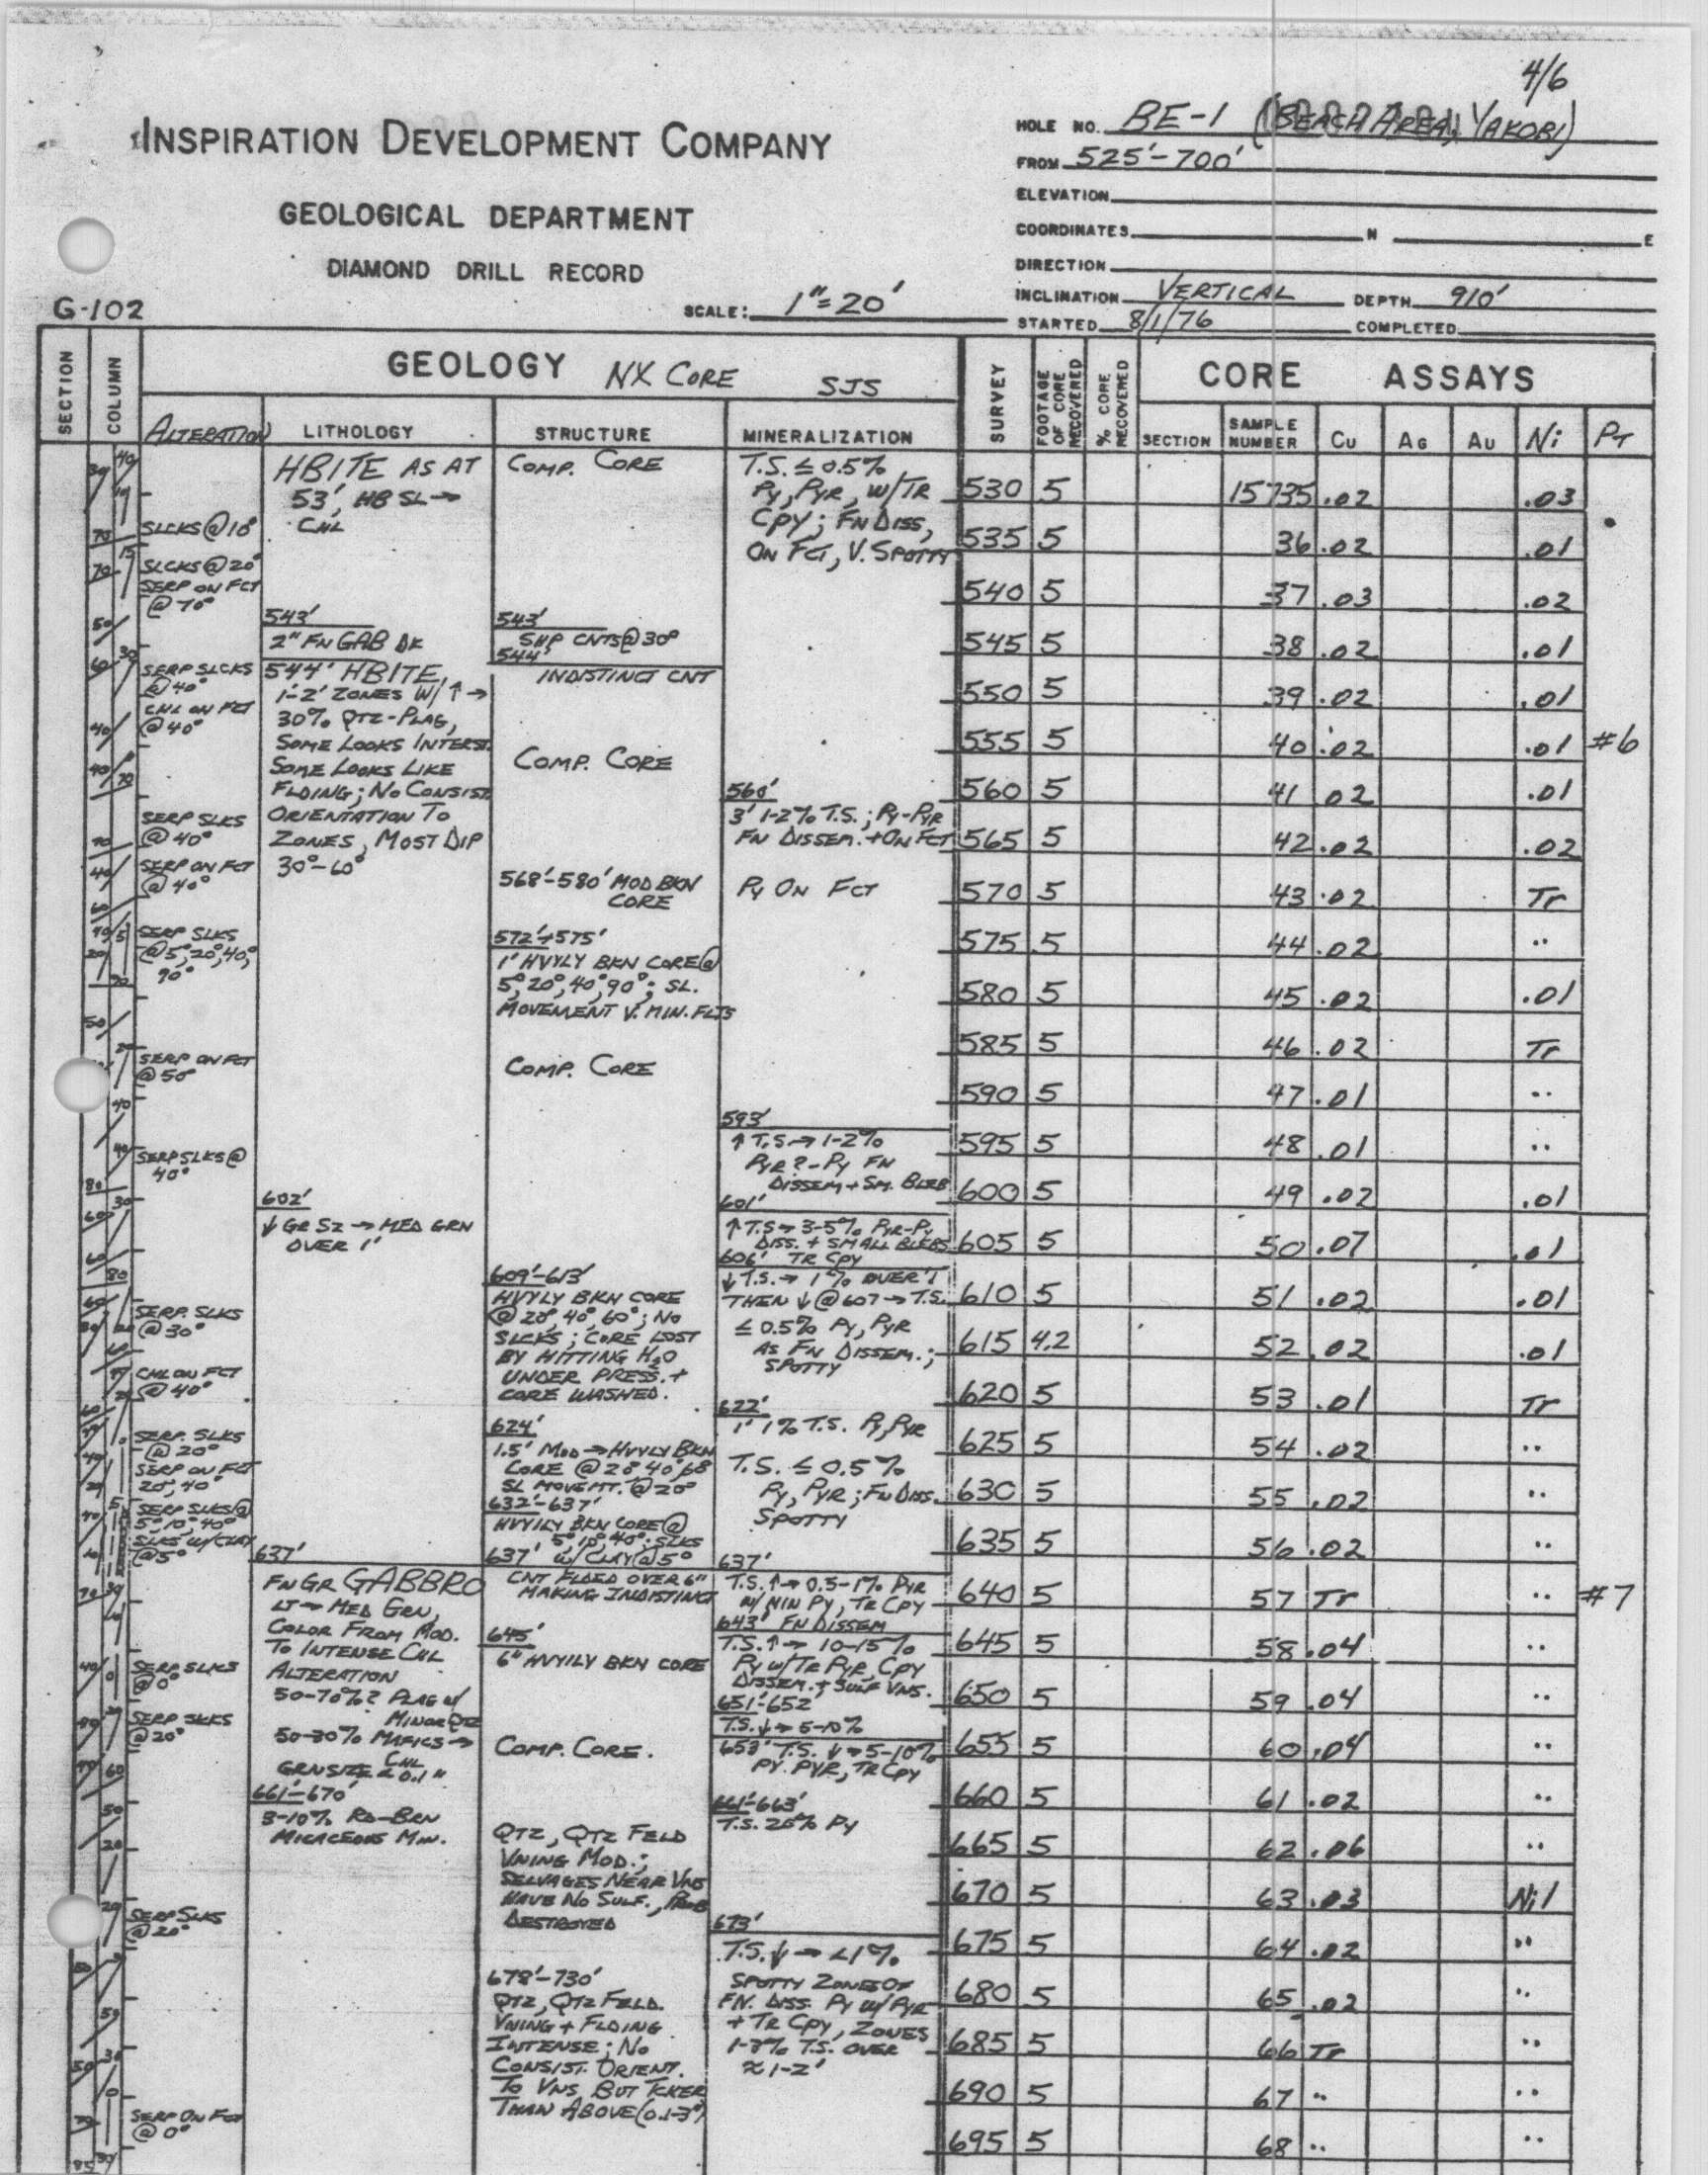 4/6
INSPIRATION DEVELOPMENT COMPANY
GEOLOGICAL DEPARTMENT
DIAMOND DRILL RECORD
G-102
SCALE: 1"=20'
HOLE NO. BE-1 (BEACH AREA, YAKOBI)
FROM 525'-700'
ELEVATION
COORDINATES N E
DIRECTION
INCLINATION VERTICAL DEPTH 910'
STARTED 8/1/76 COMPLETED
SECTION
COLUMN
GEOLOGY NX CORE SJS
SURVEY
FOOTAGE OF CORE RECOVERED
% CORE RECOVERED
CORE ASSAYS
ALTERATION LITHOLOGY STRUCTURE MINERALIZATION
SECTION SAMPLE NUMBER Cu AG AU Ni PT
SLCKS @ 10°
SLCKS @ 20°
SERP ON FCT
@ 70°
SERP SLCKS
@ 40°
CHL ON FCT
@ 40°
SERP SLKS
@ 40°
SERP ON FCT
@ 40°
SERP SLKS
@ 5°, 20°, 40°,
90°
SERP ON FCT
@ 50°
SERP SLKS @
40°
SERP. SLKS
@ 30°
CHL ON FCT
@ 40°
SERP. SLKS
@ 20°
SERP ON FCT
20°, 40°
SERP SLKS @
5°, 10°, 40°
SLKS W/CLAY
@ 5°
SERP SLKS
@ 0°
SERP SLKS
@ 20°
SERP SLKS
@ 20°
SERP ON FCT
@ 0°
HBITE AS AT
53', HB SL→
CHL
543'
2" FN GAB DK
544' HBITE,
1'-2' ZONES W/ ↑→
30% QTZ-PLAG,
SOME LOOKS INTERST.
SOME LOOKS LIKE
FLDING; NO CONSIST.
ORIENTATION TO
ZONES, MOST DIP
30°-60°
602'
↓ GR SZ → MED GRN
OVER 1'
637'
FN GR GABBRO
LT → MED GRN,
COLOR FROM MOD.
TO INTENSE CHL
ALTERATION
50-70%? PLAG W/
MINOR QTZ
50-30% MAFICS →
CHL
GRNSIZE ≤ 0.1"
661'-670'
3-10% RD-BRN
MICACEOUS MIN.
COMP. CORE
543'
SHP CNTS @ 30°
544'
INDISTINCT CNT
COMP. CORE
568'-580' MOD BKN
CORE
572'→575'
1' HVYLY BKN CORE @
5°, 20°, 40°, 90°; SL.
MOVEMENT V. MIN. FLTS
COMP. CORE
609'-613'
HVYLY BKN CORE
@ 20°, 40°, 60°; NO
SLCKS; CORE LOST
BY HITTING H2O
UNDER PRESS. +
CORE WASHED.
624'
1.5' MOD → HVYLY BKN
CORE @ 20°, 40°, 60°
SL MOVEMT. @ 20°
632'-637'
HVYLY BKN CORE @
5°, 10°, 40°; SLKS
637' W/CLAY @ 5°
CNT FLDED OVER 6"
MAKING INDISTINCT
645'
6" HVYLY BKN CORE
COMP. CORE.
QTZ, QTZ FELD
VNING MOD.;
SELVAGES NEAR VNS
HAVE NO SULF., PROB
DESTROYED
678'-730'
QTZ, QTZ FELD.
VNING + FLDING
INTENSE; NO
CONSIST. ORIENT.
TO VNS BUT TCKER
THAN ABOVE (0.1-3")
T.S. ≤ 0.5%
PY, PYR, W/TR
CPY; FN DISS,
ON FCT, V. SPOTTY
560'
3' 1-2% T.S.; PY-PYR
FN DISSEM. + ON FCT
PY ON FCT
593'
↑ T.S → 1-2%
PYR? - PY FN
DISSEM + SM. BLEB
601'
↑ T.S → 3-5% PYR-PY
DISS. + SMALL BLEBS
606' TR CPY
↓ T.S. → 1% OVER 1'
THEN ↓ @ 607 → T.S.
≤ 0.5% PY, PYR
AS FN DISSEM.;
SPOTTY
622'
1' 1% T.S. PY, PYR
T.S. ≤ 0.5%
PY, PYR; FN DISS.
SPOTTY
637'
T.S. ↑ → 0.5-1% PYR
W/ MIN PY, TR CPY
643' FN DISSEM
T.S. ↑ → 10-15%
PY W/TR PYR, CPY
DISSEM. + SULF VNS.
651'-652'
T.S. ↓ → 5-10%
653' T.S. ↓ → 5-10%
PY. PYR, TR CPY
661'-663'
T.S. 25% PY
673'
T.S. ↓ → <1%
SPOTTY ZONES OF
FN. DISS. PY W/ PYR
+ TR CPY, ZONES
1-3% T.S. OVER
≈ 1-2'
530 5 15735 .02 .03
535 5 36 .02 .01
540 5 37 .03 .02
545 5 38 .02 .01
550 5 39 .02 .01
555 5 40 .02 .01 #6
560 5 41 02 .01
565 5 42 .02 .02
570 5 43 .02 Tr
575 5 44 .02 "
580 5 45 .02 .01
585 5 46 .02 Tr
590 5 47 .01 "
595 5 48 .01 "
600 5 49 .02 .01
605 5 50 .07 .01
610 5 51 .02 .01
615 4.2 52 .02 .01
620 5 53 .01 Tr
625 5 54 .02 "
630 5 55 .02 "
635 5 56 .02 "
640 5 57 Tr " #7
645 5 58 .04 "
650 5 59 .04 "
655 5 60 .04 "
660 5 61 .02 "
665 5 62 .06 "
670 5 63 .03 Nil
675 5 64 .02 "
680 5 65 .02 "
685 5 66 Tr "
690 5 67 " "
695 5 68 " "